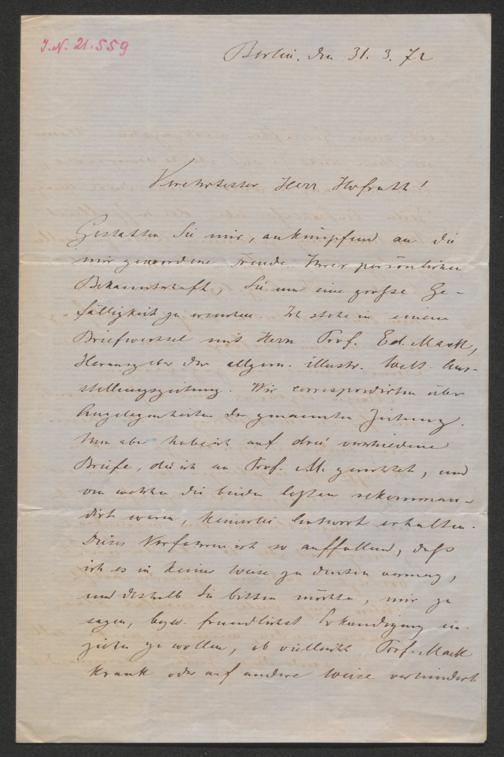 I.N. 21.559
Berlin, den 31. 3. 72
Verehrtester Herr Hofrath!
Gestatten Sie mir, anknüpfend an die
mir gewordene Freude Ihrer persönlichen
Bekanntschaft, Sie um eine große Ge-
fälligkeit zu ersuchen. Ich stehe in einem
Briefwechsel mit Herrn Prof. Ed. Mack,
Herausgeber der allgem. illustr. Welt-Aus-
stellungszeitung. Wir correspondirten über
Angelegenheiten der genannten Zeitung.
Nun aber habe ich auf drei verschiedene
Briefe, die ich an Prof. M. gerichtet, und
von welchen die beiden letzten rekomman-
dirt waren, keinerlei Antwort erhalten.
Dieses Verfahren ist so auffallend, daß
ich es in keiner Weise zu deuten vermag,
und deshalb Sie bitten möchte, mir zu
sagen, bzw. freundlichst Erkundigung ein-
ziehen zu wollen, ob vielleicht Prof. Mack
krank oder auf andere Weise verhindert